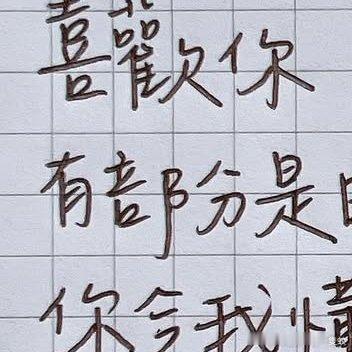 喜歡你
有部分是
你令我懂